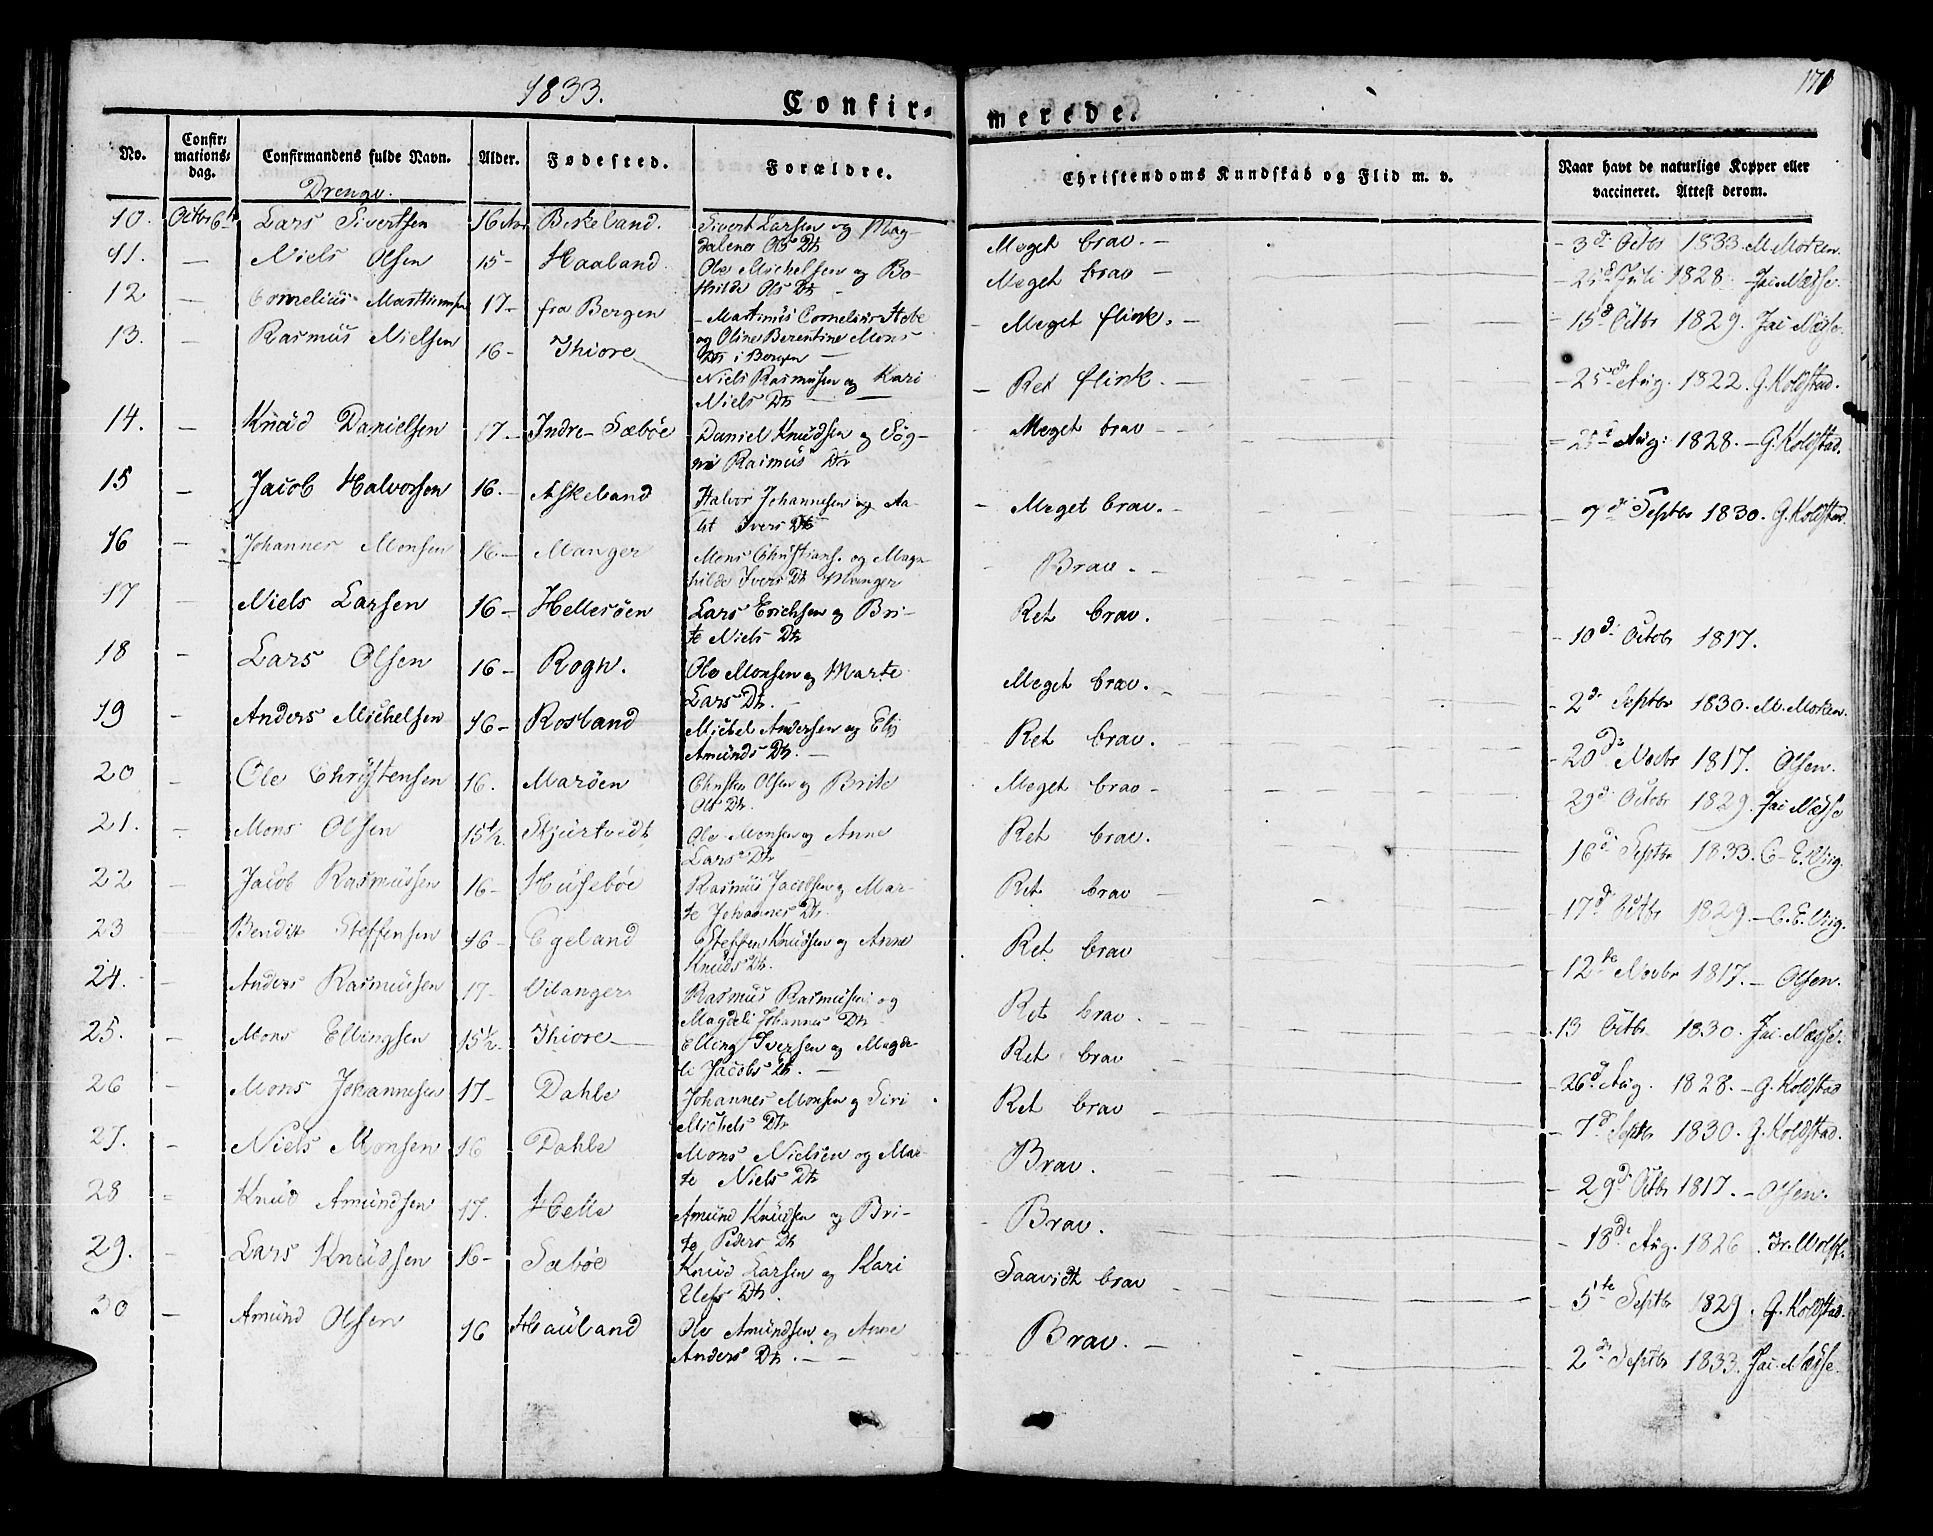 1833.
171
Confir-
merede.
No.
Confir-
mations-
dag.
Confirmandens fulde Navn.
Alder.
Fødested.
Forældre.
Christendoms Kundskab og Flid m. v.
Naar havt de naturlige Kopper eller
vaccineret. Attest derom.
Drenge.
10. Octbr 6te Lars Sivertsen 16 Birkeland. Sivert Larsen og Mag-
dalene Ols Dtr Meget brav. - 3d Octbr 1833. M. Morken.
11. - Niels Olsen 15- Haaland Ole Michelsen og Bo-
thilde Ols Dtr Meget brav - 25d Juli 1828. Jac. Næsse.
12 - Cornelius Marthinussen 17- fra Bergen - Martinus Cornelius
og Oline Berentine Mons
Dtr i Bergen - Meget flink. - 15d Octbr 1829. Jac. Næsse.
13. - Rasmus Nielsen 16- Thiore Niels Rasmussen og Kari
Niels Dtr - Ret flink. - 25de Aug. 1822. G. Koldstad.
14. - Knud Danielsen 17- Indre Sæbøe Daniel Knudsen og Søg-
ni Rasmus Dtr Meget brav - 21d Aug: 1828. - G. Koldstad.
15 - Jacob Halvorsen 16.- Askeland Halvor Johannesen og Aa-
let Ivers Dtr - Meget brav. - 7d Septbr 1830. G. Koldstad.
16 - Johannes Monsen 16- Manger Mons Christians. og Mag-
hilde Ivers Dtr Manger - Brav. -
17 - Niels Larsen 16- Hellesøen Lars Erichsen og Bri-
te Niels Dtr Ret brav. - 10d Octobr 1817.
18 - Lars Olsen 16- Rogn. Ole Monsen og Marte
Lars Dtr. Meget brav. - 2d Septbr 1830. M. Morken.
19 - Anders Michelsen 16- Rosland Michel Andersen og Eli
Amunds Dtr. - Ret brav. - 20de Novbr 1817. Olsen.
20 - Ole Christensen 16. Marøen Christen Olsen og Brite
Ols Dtr. Meget brav - 29d Octobr 1829. Jac. Næsse
21. - Mons Olsen 15½. Stjurtvedt Ole Monsen og Anne
Lars Dtr Ret brav. 16d Septbr 1833. C. E. Vig.
22 - Jacob Rasmussen 16- Husebøe Rasmus Jacobsen og Mar-
te Johannes Dtr. Ret brav - 17d Octbr 1829. - C. E. Vig.
23 - Bendix Steffensen 16- Egeland Steffen Knudsen og Anne
Knuds Dtr. Ret brav - 12te Novbr 1817. - Olsen.
24. - Anders Rasmussen 17- Vilanger Rasmus Rasmussen og
Magdeli Johannes Dtr Ret brav. - 13 Octbr 1830. Jac. Næsse.
25. - Mons Ellingsen 15½. Thiore Elling Iversen og Magde-
li Jacobs Dtr. - Ret brav - 26d Aug. 1828. - G. Koldstad
26 - Mons Johannesen 17- Dahle Johannes Monsen og Siri
Michels Dtr Ret brav - 7d Septbr 1830. G. Koldstad.
27. - Niels Monsen 16 Dahle Mons Nielsen og Mar-
te Niels Dtr Brav. - 29d Octbr 1817. - Olsen.
28 - Knud Amundsen 17. Helle Amund Knudsen og Bri-
te Peders Dtr - Brav. - 18de Aug. 1826
29. - Lars Knudsen 16- Sæbøe Knud Larsen og Kari
Dtr. Saavidt brav - 5te Septbr 1829. G. Koldstad.
30 - Amund Olsen 16 Hauland Ole Amundsen og Anne
Anders Dtr. - Brav. - 2de Septbr 1833. Jac. Næsse.